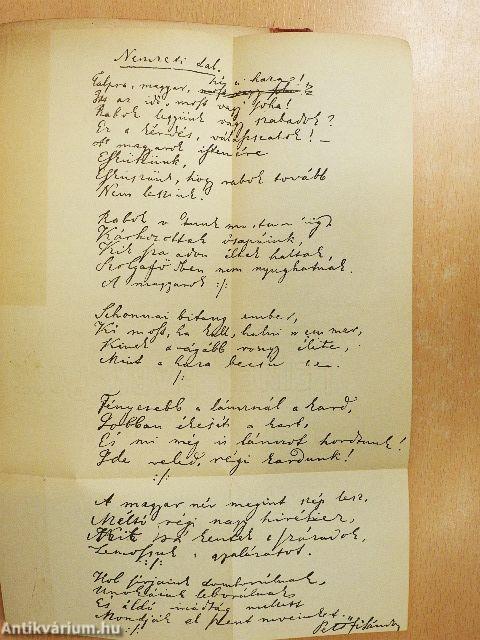 Nemzeti dal.
Talpra, magyar, hí a haza!
Itt az idő, most vagy soha!
Rabok legyünk vagy szabadok?
Ez a kérdés, válasszatok! –
A magyarok istenére
Esküszünk,
Esküszünk, hogy rabok tovább
Nem leszünk!
Rabok voltunk mostanáig,
Kárhozottak ősapáink,
Kik szabadon éltek haltak,
Szolgaföldben nem nyughatnak.
A magyarok :/:
Sehonnai bitang ember,
Ki most, ha kell, halni nem mer,
Kinek drágább rongy élete,
Mint a haza becsülete.
:/:
Fényesebb a láncznál a kard,
Jobban ékesíti a kart,
És mi még is lánczot hordtunk!
Ide veled, régi kardunk!
:/:
A magyar név megint szép lesz,
Méltó régi nagy hiréhez,
Mit rá kentek a századok,
Lemossuk a gyalázatot.
:/:
Hol sírjaink domborulnak,
Unokáink leborulnak,
És áldó imádság mellett
Mondják el szent neveinket.
:/:
Petőfi Sándor
Antikvárium.hu